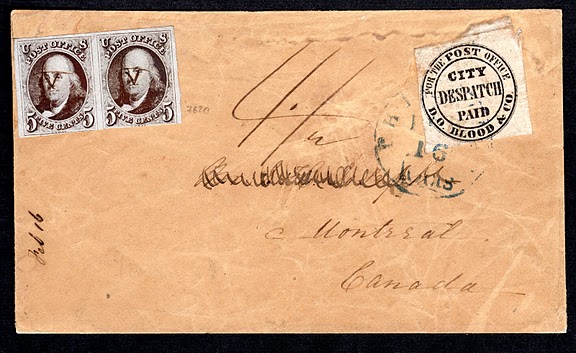 U S
POST OFFICE
V
5 FIVE CENTS 5
U S
POST OFFICE
V
5 FIVE CENTS 5
FOR THE POST OFFICE
CITY
DESPATCH
PAID
D.O. BLOOD & CO.
16
Montreal
Canada
Feb 16